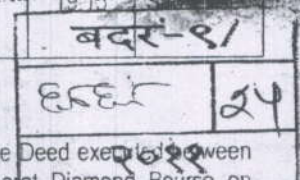 बदर-९/
२५
२०११
e Deed executed between
Diamond Bourse on